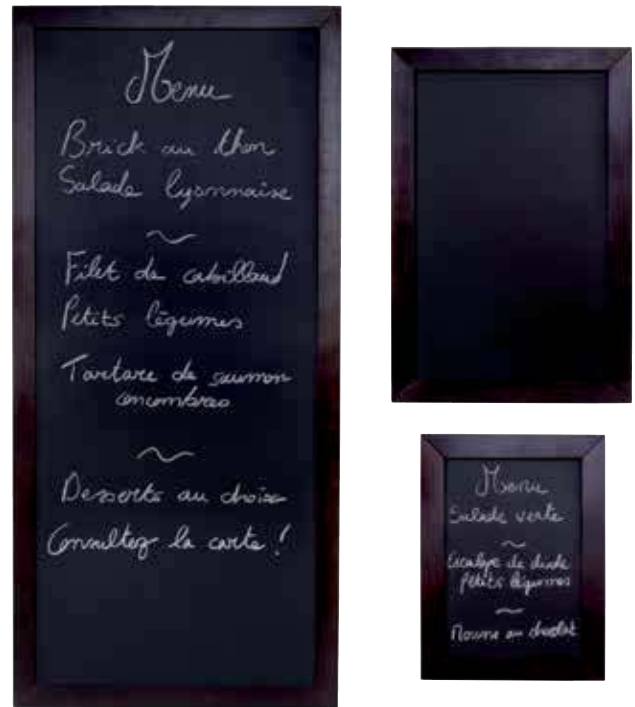 Menu
Brick au thon
Salade lyonnaise
Filet de cabillaud
Petits légumes
Tartare de saumon
concombres
Desserts au choix
Consultez la carte !
Menu
Salade verte
Escalope de dinde
Petits légumes
Mousse au chocolat